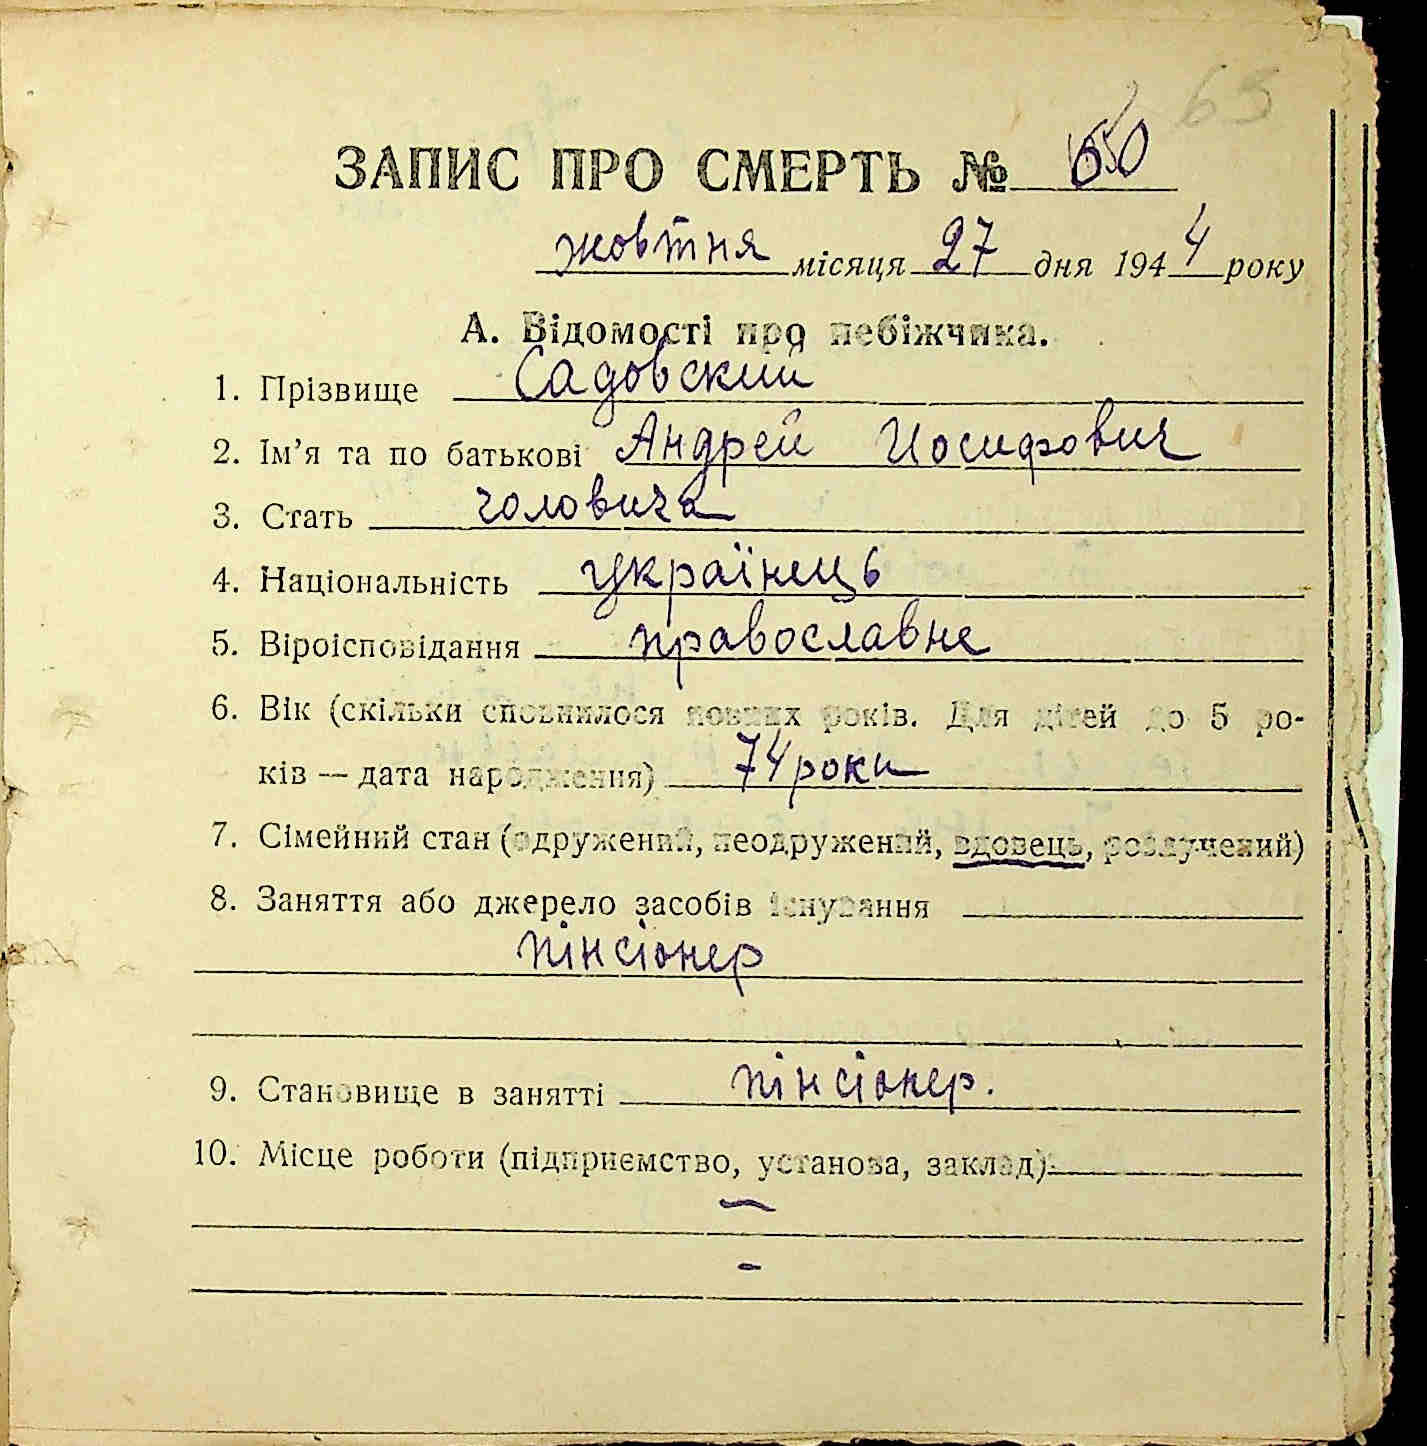 65
ЗАПИС ПРО СМЕРТЬ №
жовтня місяця 27 дня 1944 року
А. Відомості про небіжчика.
1. Прізвище Садовский
2. Ім’я та по батькові Андрей Иосифович
3. Стать чоловіча
4. Національність українець
5. Віроісповідання православне
6. Вік (скільки сповнилося повних років. Для дітей до 5 ро-
ків — дата народження) 74 роки
7. Сімейний стан (одружений, неодружений, вдовець, розлучений)
8. Заняття або джерело засобів існування
пінсіонер
9. Становище в занятті пінсіонер.
10. Місце роботи (підприємство, установа, заклад):
—
-